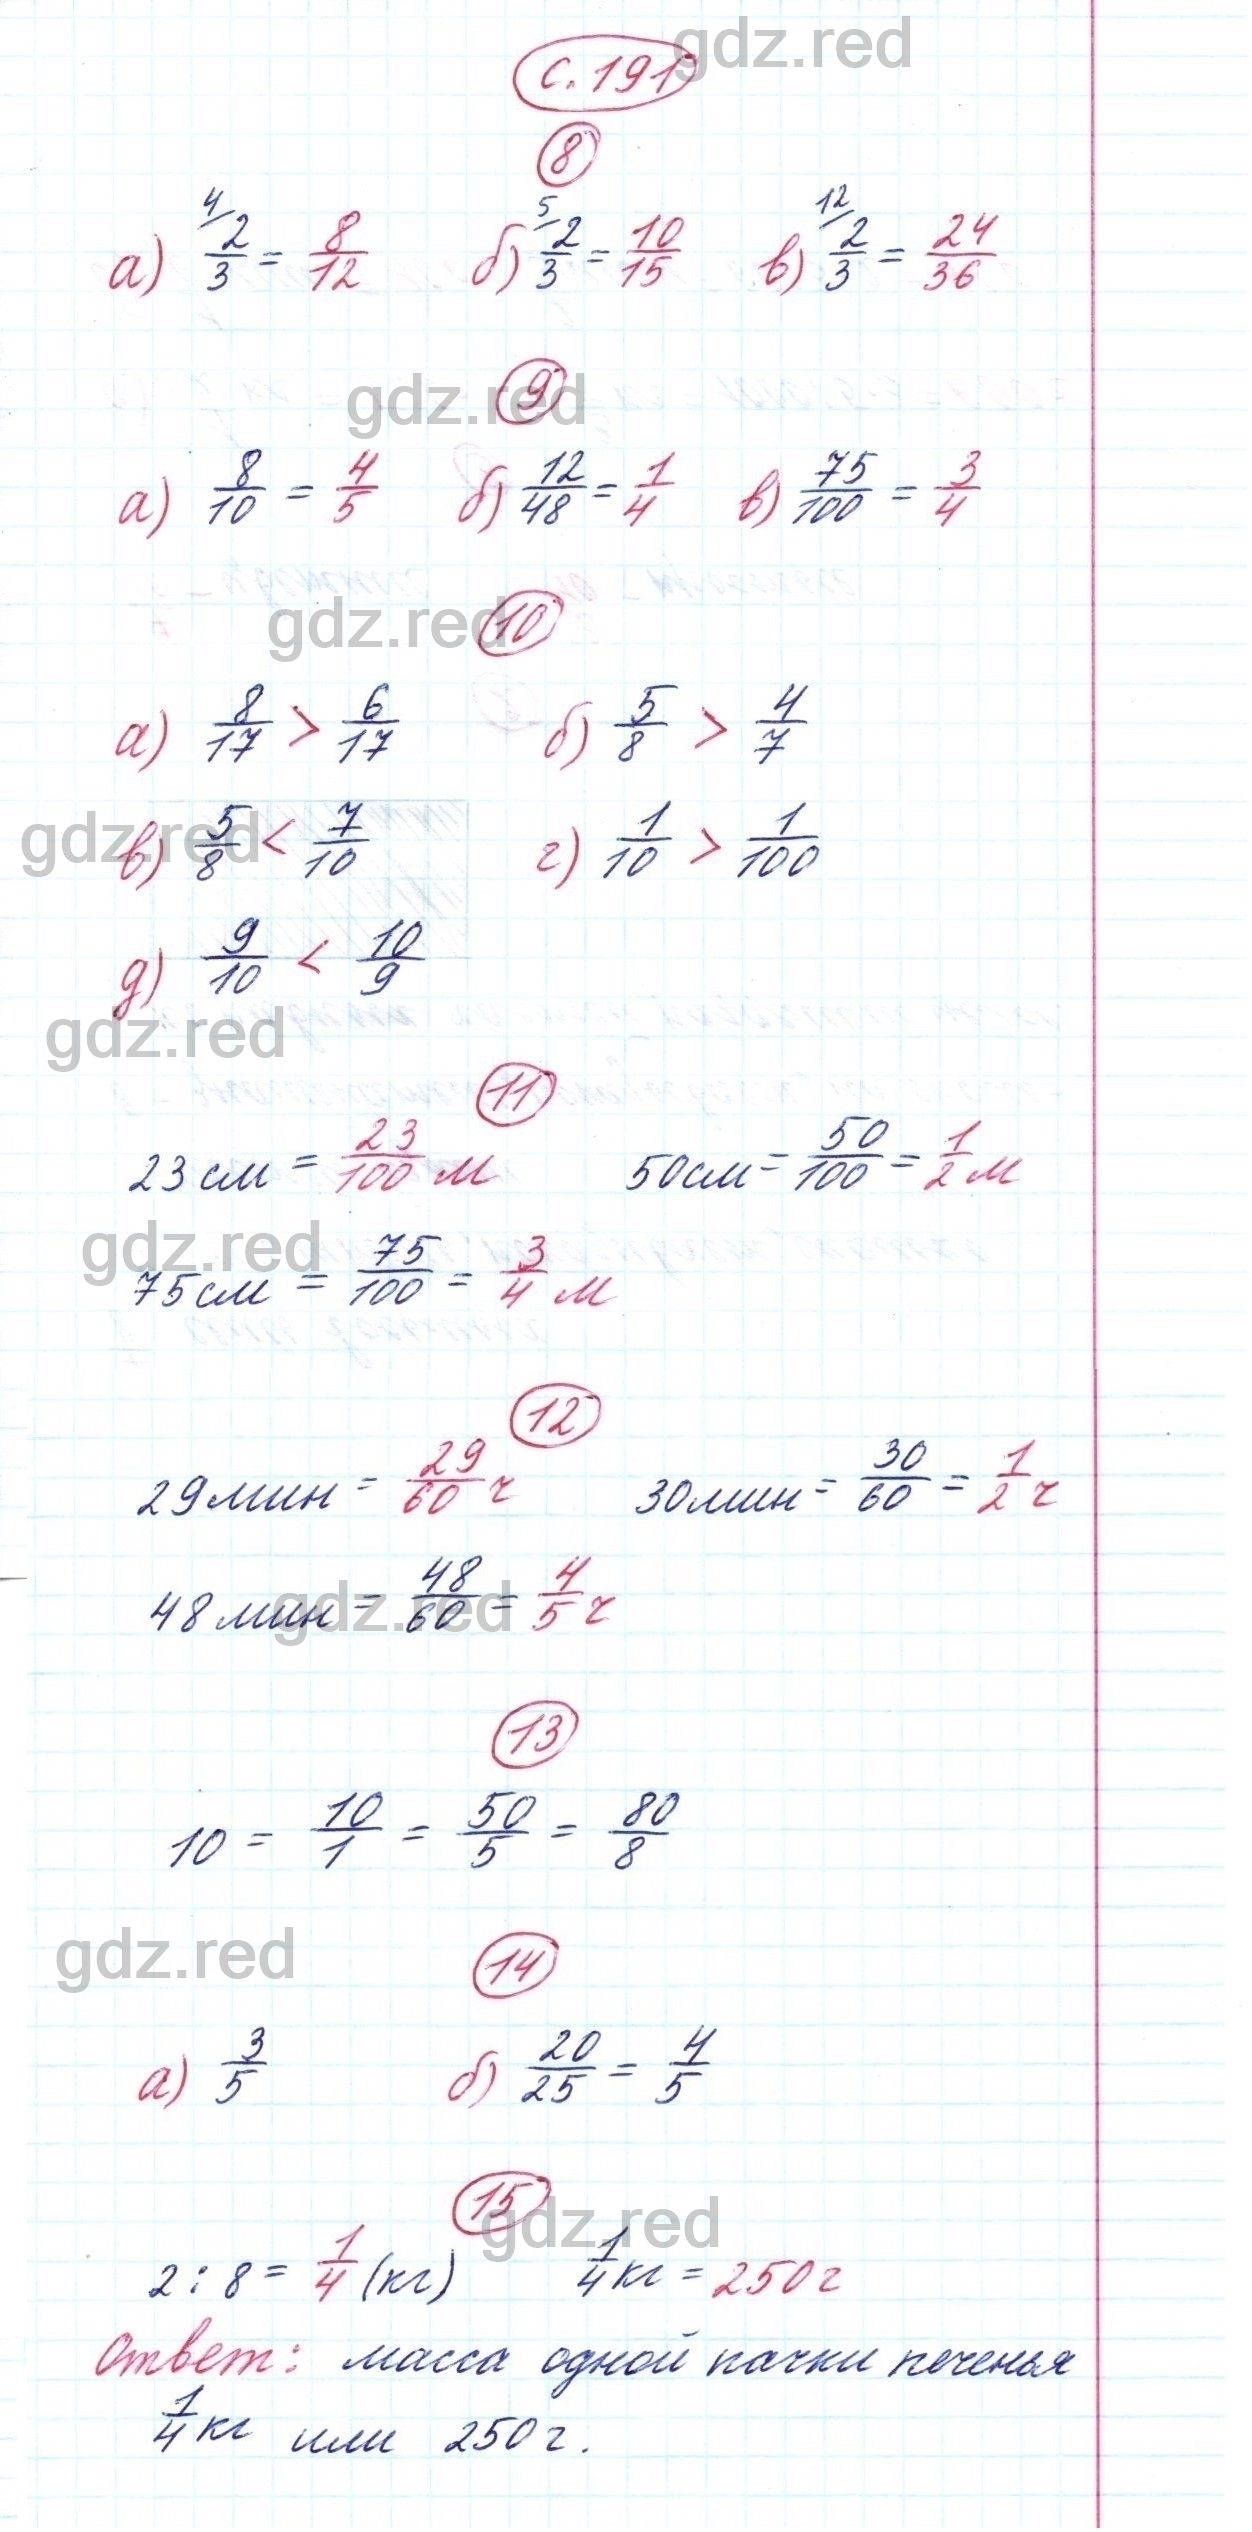 gdz.red
с. 191
8
а) 4/ 2/3 = 8/12 б) 5/ 2/3 = 10/15 в) 12/ 2/3 = 24/36
gdz.red
9
а) 8/10 = 4/5 б) 12/48 = 1/4 в) 75/100 = 3/4
gdz.red
10
а) 8/17 > 6/17 б) 5/8 > 4/7
gdz.red
в) 5/8 < 7/10 г) 1/10 > 1/100
д) 9/10 < 10/9
gdz.red
11
23 см = 23/100 м 50 см = 50/100 = 1/2 м
gdz.red
75 см = 75/100 = 3/4 м
12
29 мин = 29/60 ч 30 мин = 30/60 = 1/2 ч
48 мин = 48/60 = 4/5 ч
gdz.red
13
10 = 10/1 = 50/5 = 80/8
gdz.red
14
а) 3/5 б) 20/25 = 4/5
15
gdz.red
2 : 8 = 1/4 (кг) 1/4 кг = 250 г
Ответ: масса одной пачки печенья
1/4 кг или 250 г.